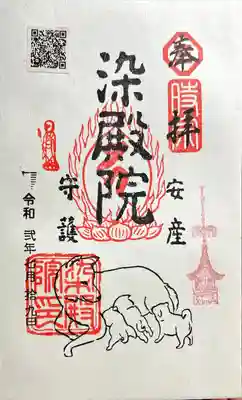 奉
拝
染殿院
安産
守護
令和 弐年 月 拾九日
染殿
院印